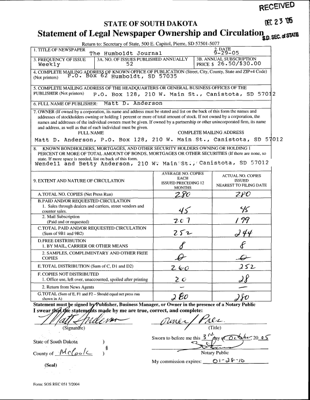 RECEIVED
DEC 23 '05
S.D. SEC. of STATE
STATE OF SOUTH DAKOTA
Statement of Legal Newspaper Ownership and Circulation
Return to: Secretary of State, 500 E. Capitol, Pierre, SD 57501-5077
1. TITLE OF NEWSPAPER
The Humboldt Journal
2. DATE
9-29-05
3. FREQUENCY OF ISSUE
Weekly
3A. NO. OF ISSUES PUBLISHED ANNUALLY
52
3B. ANNUAL SUBSCRIPTION
PRICE $ 26.50/$30.00
4. COMPLETE MAILING ADDRESS OF KNOWN OFFICE OF PUBLICATION (Street, City, County, State and ZIP+4 Code)
(Not printers) P.O. Box 62 Humboldt, SD 57035
5. COMPLETE MAILING ADDRESS OF THE HEADQUARTERS OR GENERAL BUSINESS OFFICES OF THE
PUBLISHER (Not printers) P.O. Box 128, 210 W. Main St., Canistota, SD 57012
6. FULL NAME OF PUBLISHER Matt D. Anderson
7. OWNER (If owned by a corporation, its name and address must be stated and list on the back of this form the names and
addresses of stockholders owning or holding 1 percent or more of total amount of stock. If not owned by a corporation, the
names and addresses of the individual owners must be given. If owned by a partnership or other unincorporated firm, its name
and address, as well as that of each individual must be given.
FULL NAME
COMPLETE MAILING ADDRESS
Matt D. Anderson, P.O. Box 128, 210 W. Main St., Canistota, SD 57012
8. KNOWN BONDHOLDERS, MORTGAGES, AND OTHER SECURITY HOLDERS OWNING OR HOLDING 1
PERCENT OR MORE OF TOTAL AMOUNT OF BONDS, MORTGAGES OR OTHER SECURITIES (If there are none, so
state. If more space is needed, list on back of this form.
Wendell and Betty Anderson, 210 W. Main St., Canistota, SD 57012
9. EXTENT AND NATURE OF CIRCULATION
AVERAGE NO. COPIES
EACH
ISSUED PRECEDING 12
MONTHS
ACTUAL NO. COPIES
ISSUED
NEAREST TO FILING DATE
A. TOTAL NO. COPIES (Net Press Run)
280
280
B. PAID AND/OR REQUESTED CIRCULATION
1. Sales through dealers and carriers, street vendors and
counter sales.
45
45
2. Mail Subscription
(Paid and/or requested)
207
199
C. TOTAL PAID AND/OR REQUESTED CIRCULATION
(Sum of 9B1 and 9B2)
252
244
D. FREE DISTRIBUTION
1. BY MAIL, CARRIER OR OTHER MEANS
8
8
2. SAMPLES, COMPLIMENTARY AND OTHER FREE
COPIES
E. TOTAL DISTRIBUTION (Sum of C, D1 and D2)
260
252
F. COPIES NOT DISTRIBUTED
1. Office use, left over, unaccounted, spoiled after printing
20
28
2. Return from News Agents
G. TOTAL (Sum of E, F1 and F2 - Should equal net press run
shown in A)
280
280
Statement must be signed by Publisher, Business Manager, or Owner in the presence of a Notary Public
I swear that the statements made by me are true, correct, and complete:
Matt Anderson
(Signature)
owner / Pres
(Title)
State of South Dakota )
County of McCook )
(Seal)
Sworn to before me this 3rd day of October 20 05
Notary Public
My commission expires: 01-28-10
Form: SOS REC 051 7/2004